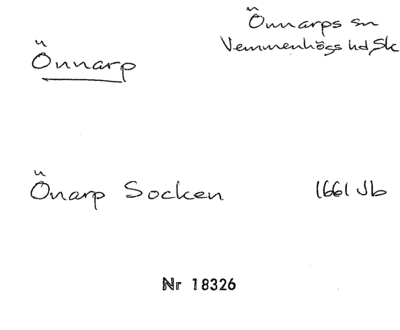 Önnarps sn
Vemmenhögs hd, Sk
Önnarp
Önarp Socken 1661 Jb
Nr 18326